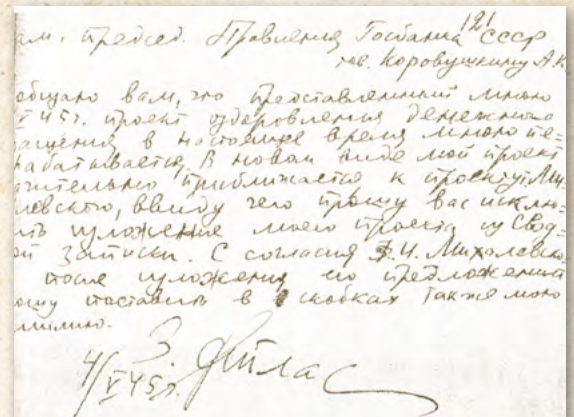 121
ам. председ. Правления Госбанка СССР
тов. Коровушкину А.К.
общаю вам, что представленный мною
V 45 г. проект оздоровления денежного
ращения в настоящее время мною пе-
рабатывается. В новом виде мой проект
ачительно приближается к проекту т. Ми-
левского, ввиду чего прошу вас исклю-
ить изложение моего проекта из Свод-
ой записки. С согласия Ф.И. Михалевско-
после изложения его предложений
ошу поставить в скобках также мою
милию.
З. Атлас
4/V 45 г.